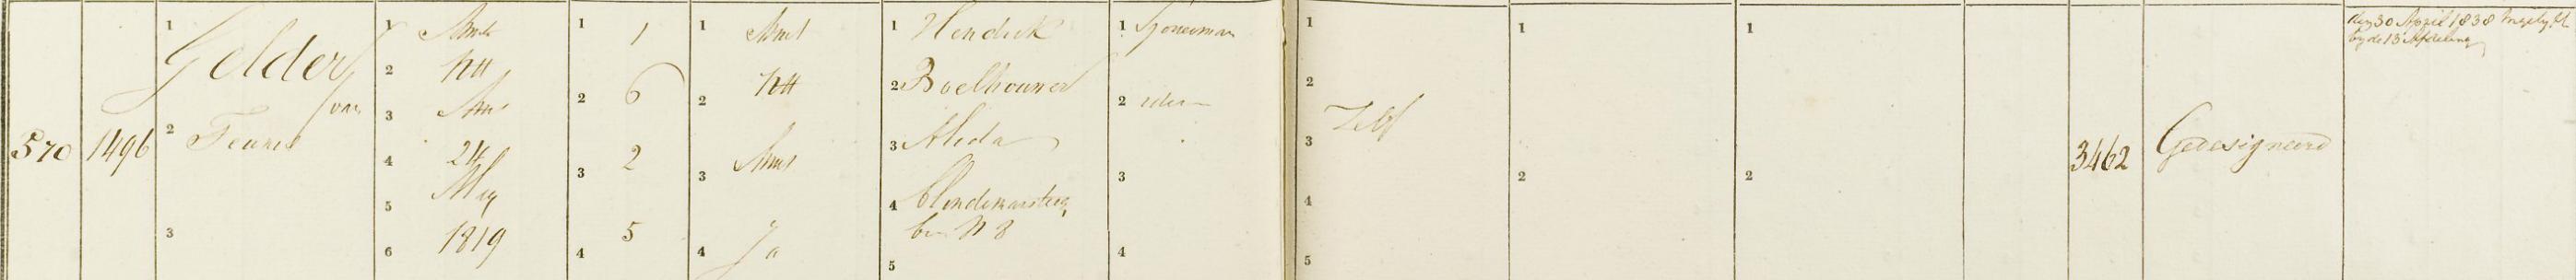 570
1496
1
Gelder
van
2
Teunis
3
1 Ams
2 NH
3 Ams
4 24
Mey
5
6 1819
1 1
2 6
3 2
4 5
1 Amst
2 NH
3 Amst
4 Ja
1 Hendrik
2 Boelhouwer
3 Alida
4
bu N 8
5
1 Sjouwerman
2 idem
3
4
1
2
3 Zelf
4
5
1
2
1
2
3462
Gedesigneerd
den 30 April 1838 Ingelyfd
by de 13 Afdeling